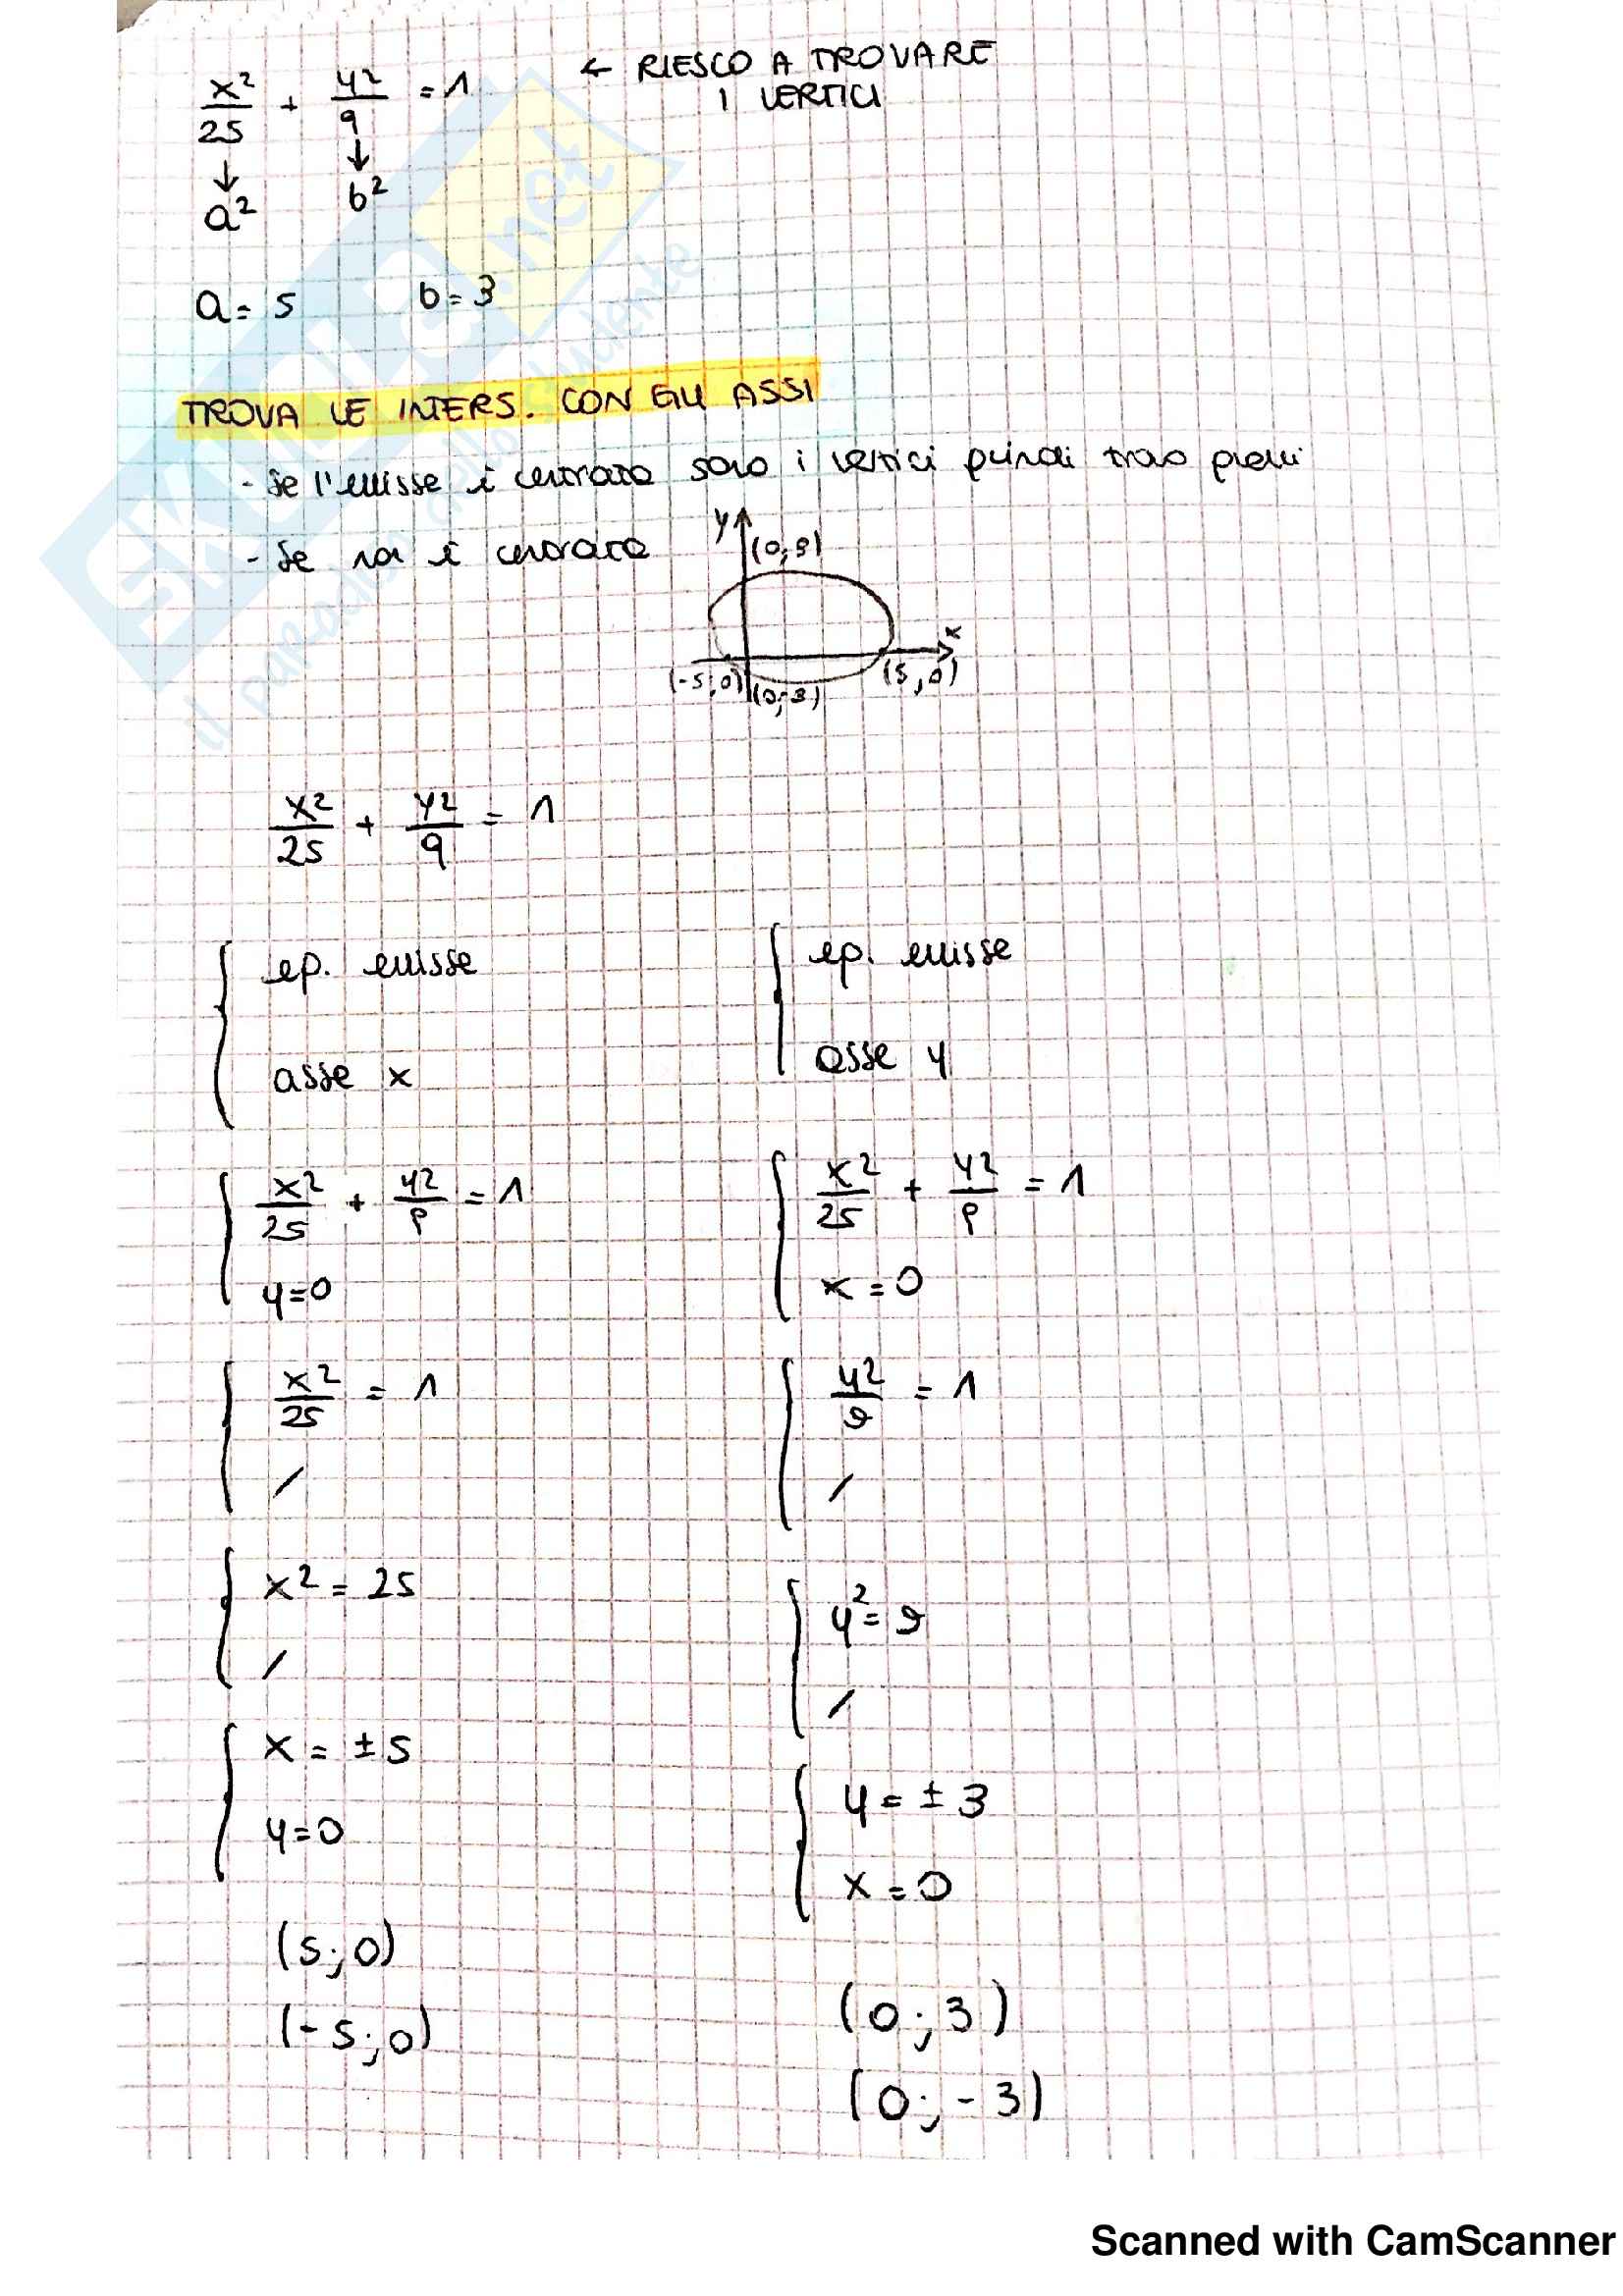 x²/25 + y²/9 = 1 ← RIESCO A TROVARE
I VERTICI
↓ ↓
a² b²
a = 5 b = 3
TROVA LE INTERS. CON GLI ASSI
- Se l'ellisse è centrata sono i vertici quindi trovo quelli
- Se non è centrata
y
(0; 3)
x
(-5; 0) (5, 0)
(0; -3)
x²/25 + y²/9 = 1
{ eq. ellisse { eq. ellisse
asse x asse y
{ x²/25 + y²/9 = 1 { x²/25 + y²/9 = 1
y=0 x = 0
{ x²/25 = 1 { y²/9 = 1
/ /
{ x² = 25 { y² = 9
/ /
{ x = ±5 { y = ±3
y=0 x = 0
(5; 0)
(-5; 0) (0; 3)
(0; -3)
SKUOLA.net
il paradiso dello studente
Scanned with CamScanner